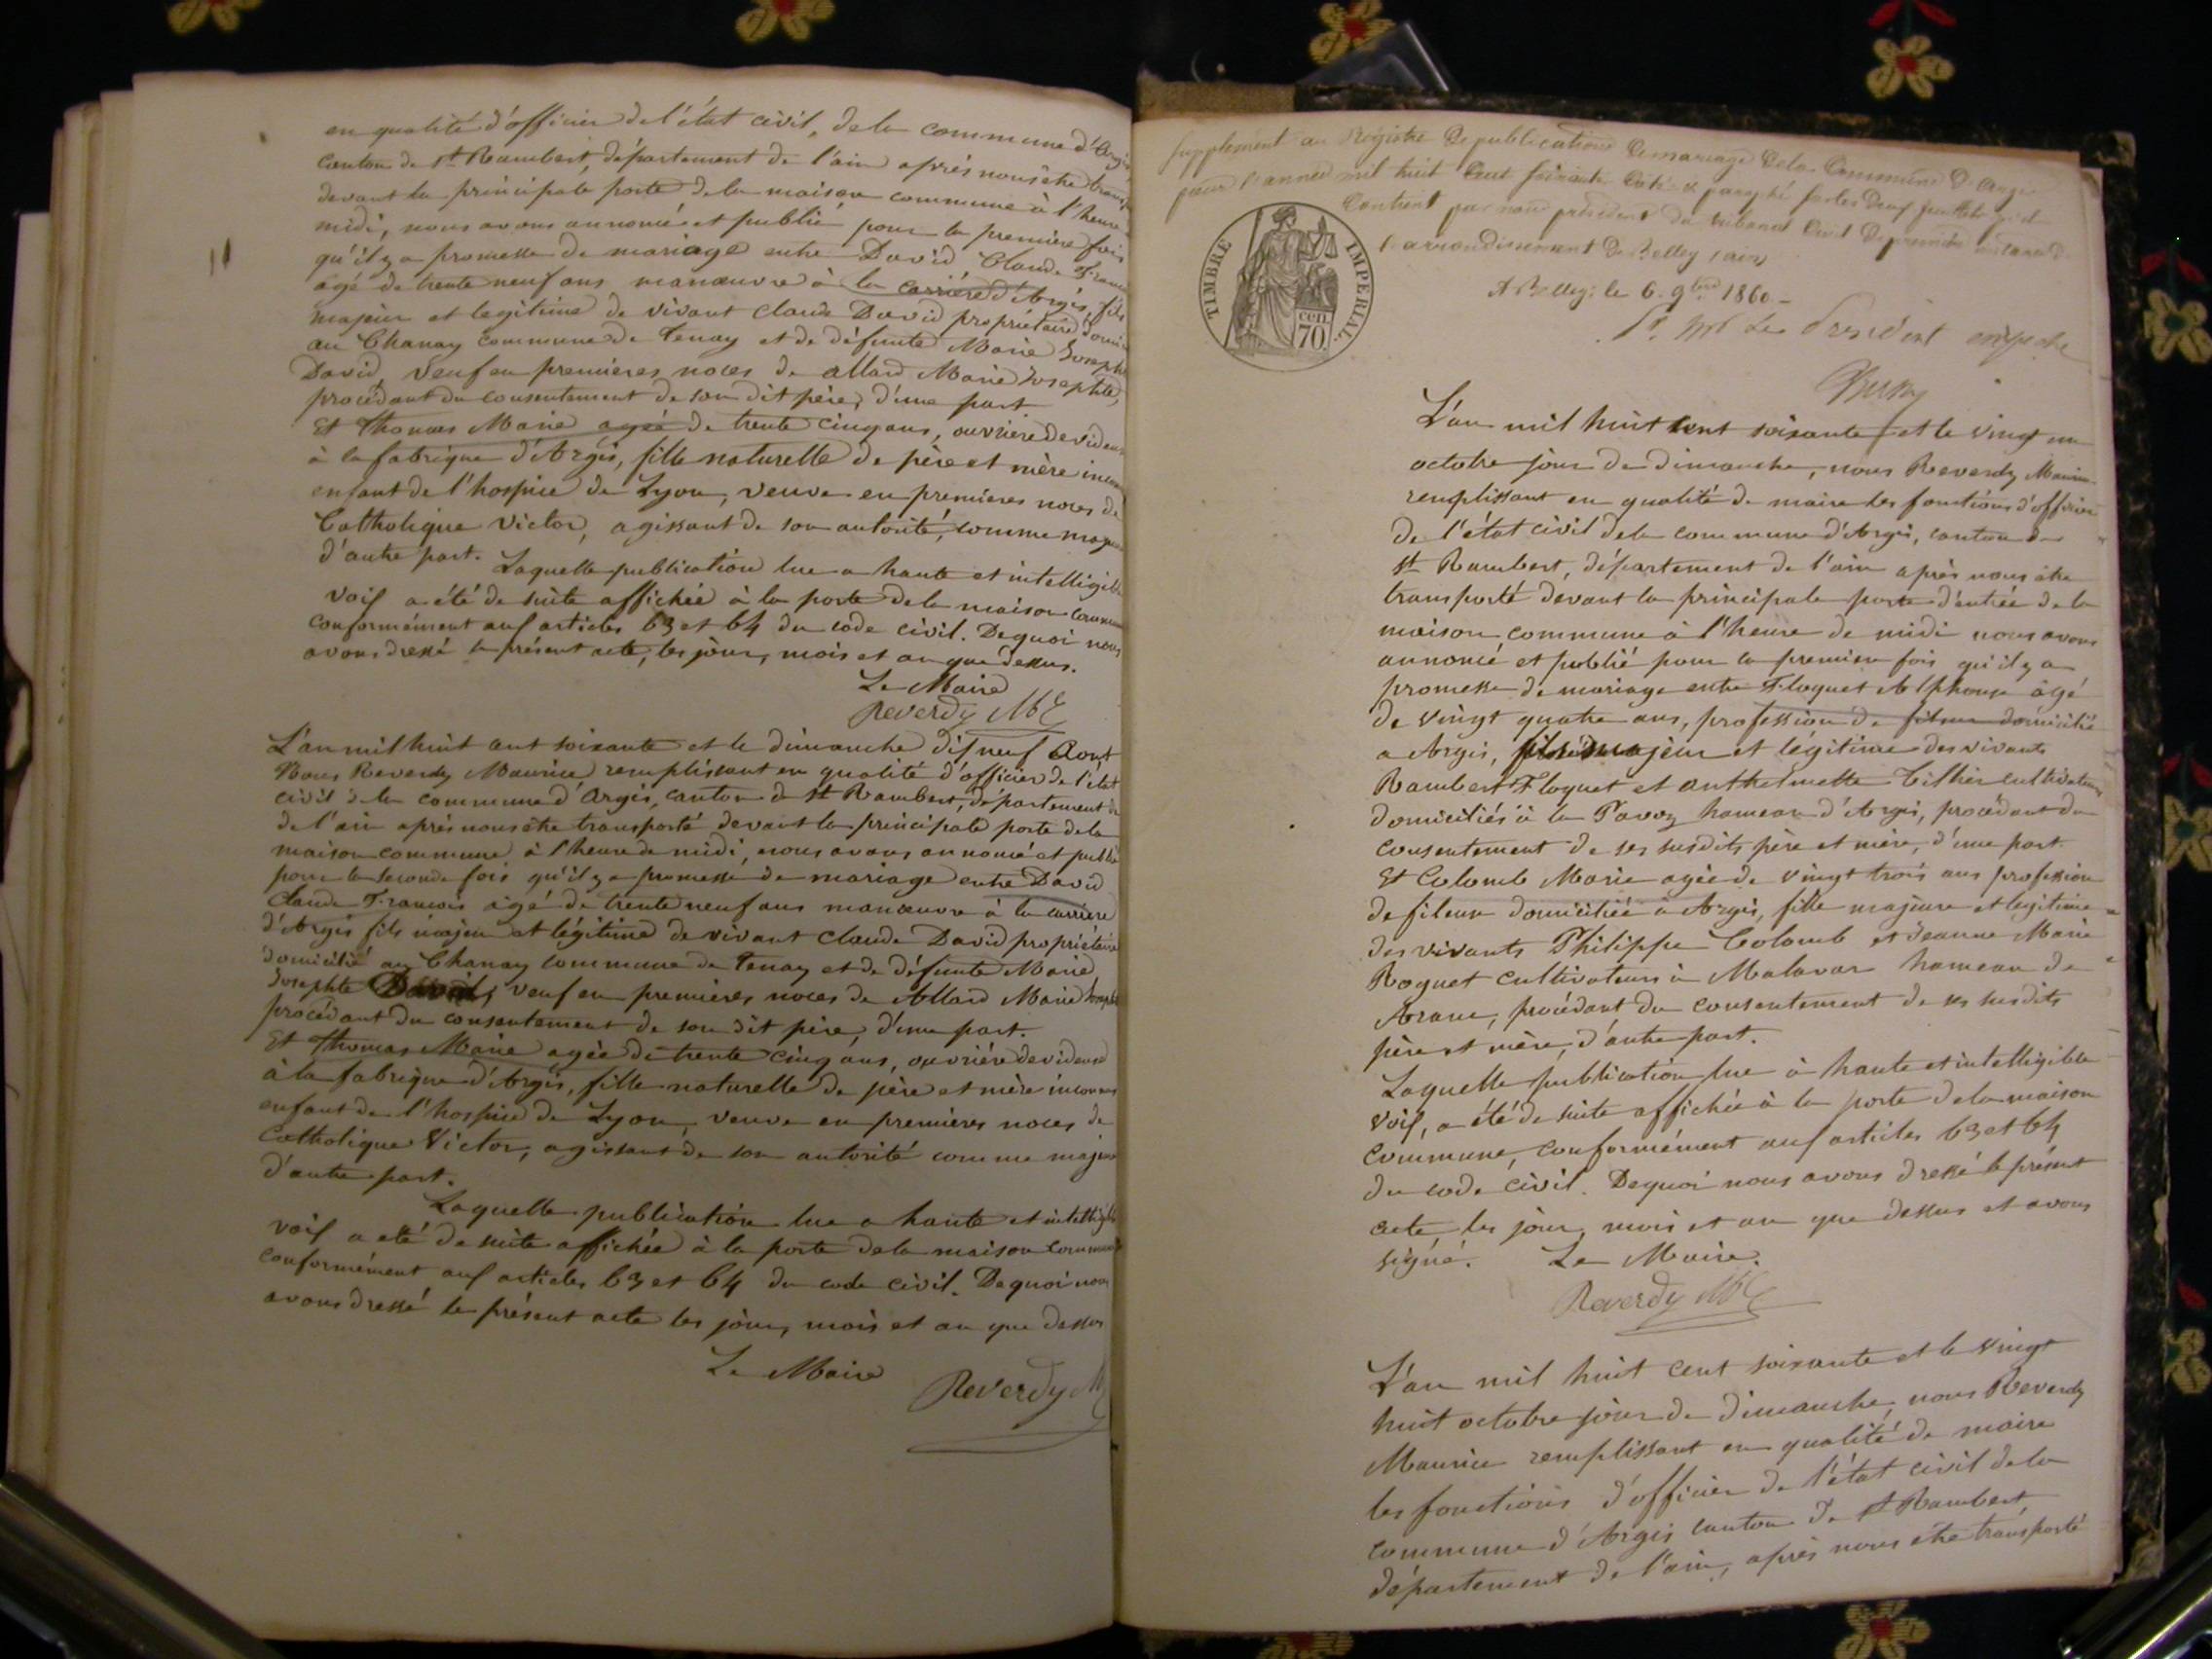 en qualité d'officier de l'état civil, de la commune d'Argis
canton de St Rambert, département de l'ain après nous être
devant la principale porte de la maison commune à l'heure
midi, nous avons annoncé et publié pour la première fois
qu'il y a promesse de mariage entre David Claude
agé de trente neuf ans manœuvre à la carrière d'Argis, fils
majeur et legitime de vivant Claude David propriétaire
au Chanay commune de Tenay et de défunte Marie Josephte
David, veuf en premieres noces de Allard Marie Josephte,
procédant du consentement de son dit père, d'une part
Et Thomas Marie agée de trente cinq ans, ouvrière devideuse
à la fabrique d'Argis, fille naturelle de père et mère
enfant de l'hospice de Lyon, veuve en premieres noces de
Catholique Victor, agissant de son autorité, comme
d'autre part. Laquelle publication lue a haute et intelligible
voix a été de suite affichée à la porte de la maison
conformément aux articles 63 et 64 du code civil. De quoi nous
avons dressé le présent acte, les jour, mois et an que dessus.
Le Maire
Reverdy
L'an mil huit cent soixante et le dimanche dix neuf Aout
Nous Reverdy Maurice remplissant en qualité d'officier de l'état
civil de la commune d'Argis, canton de St Rambert, département de
de l'ain après nous être transporté devant la principale porte de la
maison commune à l'heure de midi, nous avons annoncé et publié
pour la seconde fois qu'il y a promesse de mariage entre David
Claude Francois agé de trente neuf ans manœuvre à la carrière
d'Argis fils majeur et légitime de vivant Claude David propriétaire
domicilié au Chanay commune de Tenay et de défunte Marie
Josephte David, veuf en premières noces de Allard Marie Josephte
procédant du consentement de son dit père, d'une part.
Et Thomas Marie agée de trente cinq ans, ouvrière devideuse
à la fabrique d'Argis, fille naturelle de père et mère inconnus
enfant de l'hospice de Lyon, veuve en premières noces de
Catholique Victor, agissant de son autorité comme majeure
d'autre part.
Laquelle publication lue a haute et intelligible
voix a eté de suite affichée à la porte de la maison commune
conformément aux articles 63 et 64 du code civil. De quoi nous
avons dressé le présent acte les jour, mois et an que dessus
Le Maire
Reverdy M
Supplément au Registre de publications de mariage de la Commune d'Argis
pour l'année mil huit Cent soixante Coté & paraphé
Contient par nous président du tribunal Civil de première instance de
l'arrondissement de Belley (ain)
A Belley, le 6. 9bre 1860 -
Le Président empeché
TIMBRE IMPERIAL.
cen.
70.
L'an mil huit cent soixante et le vingt un
octobre jour de dimanche, nous Reverdy Maurice
remplissant en qualité de maire les fonctions d'officier
de l'état civil de la commune d'Argis, canton de
St Rambert, département de l'ain après nous être
transporté devant la principale porte d'entrée de la
maison commune à l'heure de midi nous avons
annoncé et publié pour la premiere fois qu'il y a
promesse de mariage entre Floquet Alphonse âgé
de vingt quatre ans, profession de fileur domicilié
a Argis, fils majeur et légitime des vivants
Rambert Floquet et Anthelmette Tithier cultivateurs
domiciliés à la Pavaz hameau d'Argis, procédant du
consentement de ses susdits père et mère, d'une part.
Et Colomb Marie agée de vingt trois ans profession
de fileuse domiciliée à Argis, fille majeure et legitime
des vivants Philippe Colomb et Jeanne Marie
Roguet cultivateurs à Malavar hameau de
Arane, procédant du consentement de ses susdits
père et mère, d'autre part.
Laquelle publication lue à haute et intelligible
voix, a été de suite affichée à la porte de la maison
commune, conformément aux articles 63 et 64
du code civil. De quoi nous avons dressé le présent
acte les jour, mois et an que dessus et avons
signé. Le Maire.
Reverdy
L'an mil huit cent soixante et le vingt
huit octobre jour de dimanche, nous Reverdy
Maurice remplissant en qualité de maire
les fonctions d'officier de l'état civil de la
commune d'Argis canton de St Rambert,
département de l'ain, après nous être transporté